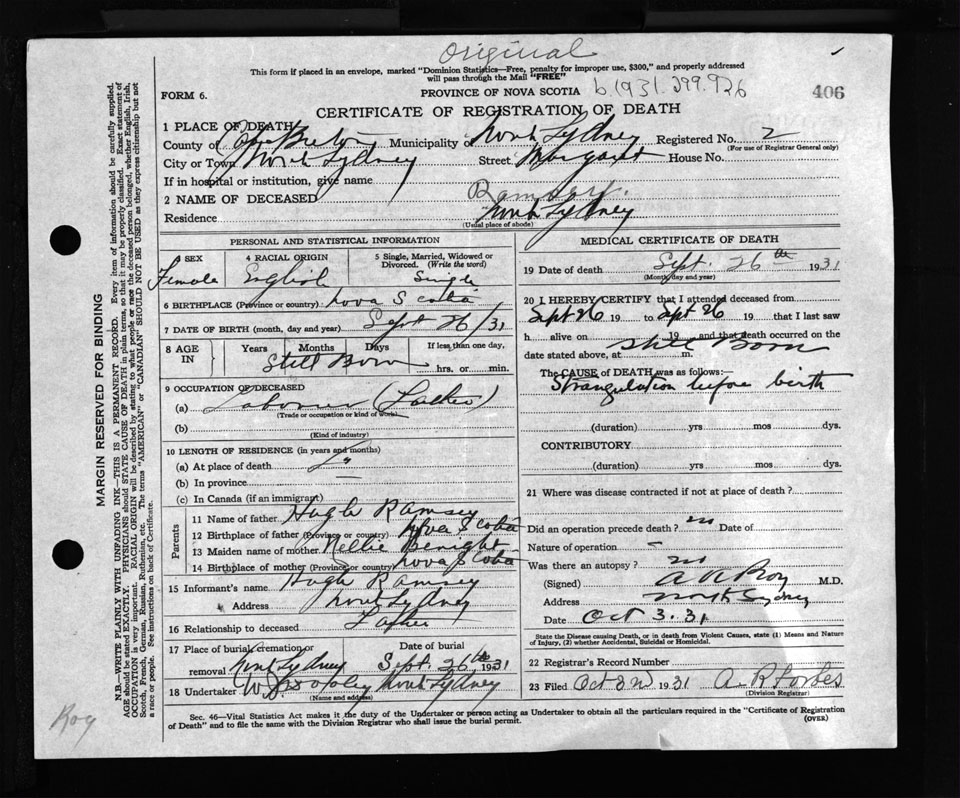 Original
This form if placed in an envelope, marked "Dominion Statistics—Free, penalty for improper use, $300," and properly addressed
will pass through the Mail "FREE"
b.1931.399.926
406
FORM 6.
PROVINCE OF NOVA SCOTIA
CERTIFICATE OF REGISTRATION OF DEATH
1 PLACE OF DEATH
County of Cape Breton Municipality of North Sydney Registered No. 2
(For use of Registrar General only)
City or Town North Sydney Street Margaret House No.
If in hospital or institution, give name
2 NAME OF DECEASED Ramsay.
Residence North Sydney
(Usual place of abode)
PERSONAL AND STATISTICAL INFORMATION
3 SEX 4 RACIAL ORIGIN 5 Single, Married, Widowed or Divorced. (Write the word)
Female English Single
6 BIRTHPLACE (Province or country) Nova Scotia
7 DATE OF BIRTH (month, day and year) Sept 26/31
8 AGE IN Years Months Days If less than one day,
Still Born hrs. or min.
9 OCCUPATION OF DECEASED
(a) Laborer (Father)
(Trade or occupation or kind of work)
(b)
(Kind of industry)
10 LENGTH OF RESIDENCE (in years and months)
(a) At place of death
(b) In province
(c) In Canada (if an immigrant)
Parents
11 Name of father Hugh Ramsey
12 Birthplace of father (Province or country) Nova Scotia
13 Maiden name of mother Nellie
14 Birthplace of mother (Province or country) Nova Scotia
15 Informant's name Hugh Ramsey
Address North Sydney
16 Relationship to deceased Father
17 Place of burial, cremation or removal North Sydney Date of burial Sept. 26th 1931
18 Undertaker North Sydney
(Name and address)
MEDICAL CERTIFICATE OF DEATH
19 Date of death Sept. 26th 1931
(Month, day and year)
20 I HEREBY CERTIFY that I attended deceased from
Sept 26 19 to Sept 26 19 that I last saw
h alive on 19 and that death occurred on
Still Born
date stated above, at m.
The CAUSE of DEATH was as follows:—
Strangulation before birth
(duration) yrs mos dys.
CONTRIBUTORY
(duration) yrs mos dys.
21 Where was disease contracted if not at place of death?
Did an operation precede death? no Date of
Nature of operation –
Was there an autopsy? no
(Signed) A A Roy M.D.
Address North Sydney
Date Oct 3. 31
State the Disease causing Death, or in death from Violent Causes, state (1) Means and Nature of Injury, (2) whether Accidental, Suicidal or Homicidal.
22 Registrar's Record Number
23 Filed Oct 3rd 1931 A. R Forbes
(Division Registrar)
Sec. 46—Vital Statistics Act makes it the duty of the Undertaker or person acting as Undertaker to obtain all the particulars required in the "Certificate of Registration
of Death" and to file the same with the Division Registrar who shall issue the burial permit.
(OVER)
MARGIN RESERVED FOR BINDING
N.B.—WRITE PLAINLY WITH UNFADING INK—THIS IS A PERMANENT RECORD. Every item of information should be carefully supplied.
AGE should be stated EXACTLY. PHYSICIANS should STATE CAUSE OF DEATH in plain terms, so that it may be properly classified. Exact statement of
OCCUPATION is very important. RACIAL ORIGIN will be described by stating to what people or race the deceased person belonged, whether English, Irish,
Scotch, French, German, Russian, Ruthenian, etc. The terms "AMERICAN" or "CANADIAN" SHOULD NOT BE USED as they express citizenship but not
a race or people. See instructions on back of Certificate.
Roy